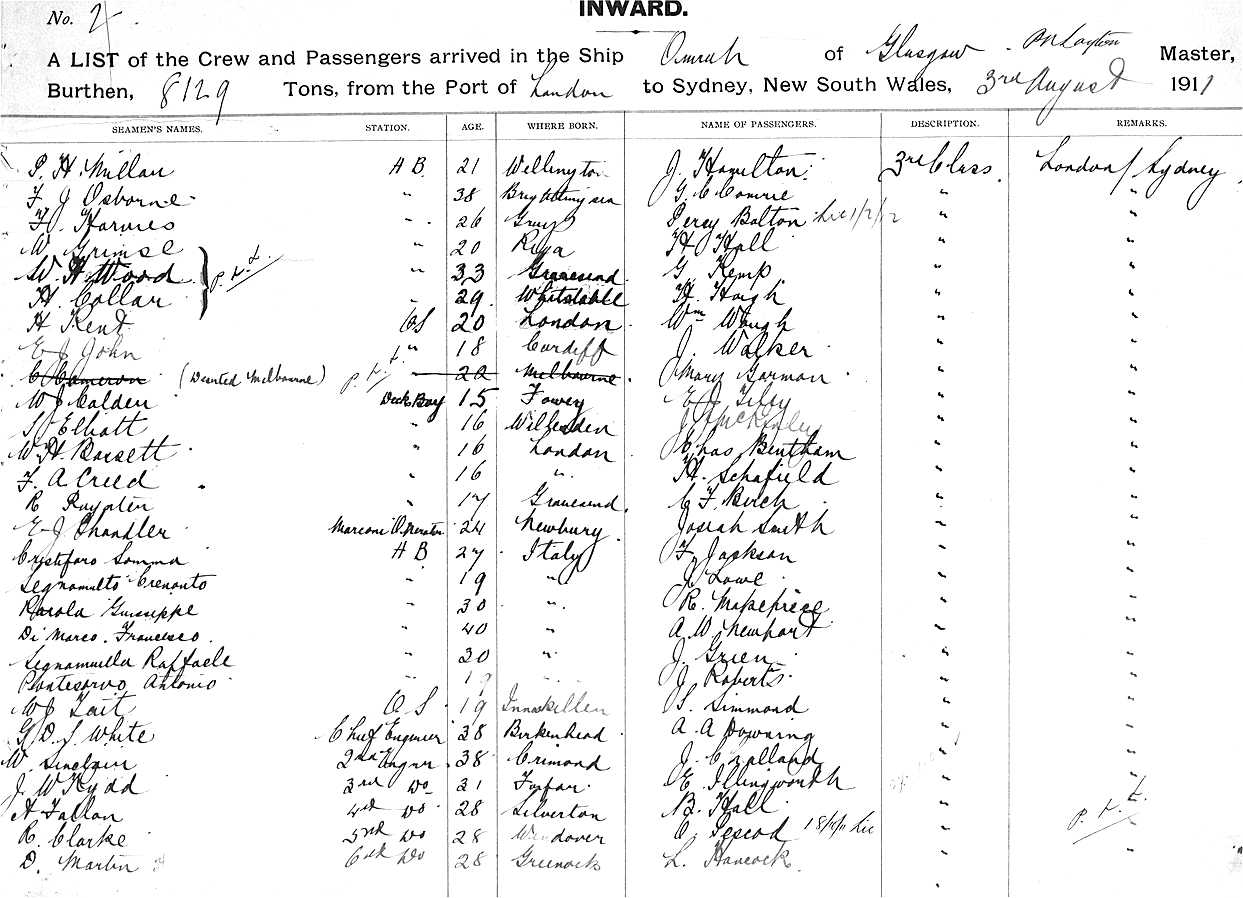 INWARD.
No. 2
A LIST of the Crew and Passengers arrived in the Ship Omrah of Glasgow Layton Master,
Burthen, 8129 Tons, from the Port of London to Sydney, New South Wales, 3rd August 1911
SEAMEN'S NAMES. STATION. AGE. WHERE BORN. NAME OF PASSENGERS. DESCRIPTION. REMARKS.
P. H. Millan A B 21 Wellington J. Hamilton 3rd Class London / Sydney
F J Osborne " 38 Brightlingsea G C Comrie " "
F. Harvies " 26 Grays Percy Bolton " "
W Grimse " 20 Riga H Hall " "
W. H Wood " 33 Gravesend G Kemp " "
H. Collar " 29 Whitstable H. Hough " "
H Kent OS 20 London Wm Waugh " "
E J John " 18 Cardiff J. Walker " "
C Cameron (Deserted Melbourne) " 22 Melbourne Mary Gorman " "
W J Calden Deck Boy 15 Fowey E J Tiley " "
S Elliott " 16 Willesden J McKinley " "
W. H Bassett " 16 London Chas Bentham " "
F. A Creed " 16 " H. Schofield " "
R Roynten " 17 Gravesend C F Birch " "
E J Chandler Marconi Operator 24 Newbury Josiah Smith " "
Cristiforo Somma A B 27 Italy F. Jackson " "
" 19 " J Lowe " "
Guiseppe " 30 " R. Makepiece " "
Di Marco. Francesco. " 40 " A W Newhart " "
Raffaele " 30 " J. Green " "
Antonio " 19 " J Roberts " "
W J Tait O S 19 Inniskillen S. Simmond " "
G D. S White Chief Engineer 38 Birkenhead A A Downing " "
W. Sinclair 2nd Engnr 38 Crimond J. Challand " "
J. W Kydd 3rd Do 31 Forfar E Illingworth " "
A Fallon 4th Do 28 Silverton B. Hall " "
R. Clarke 5th Do 28 Wendover O. Pescod " "
D. Martin 6th Do 28 Greenock L. Hancock " "
"